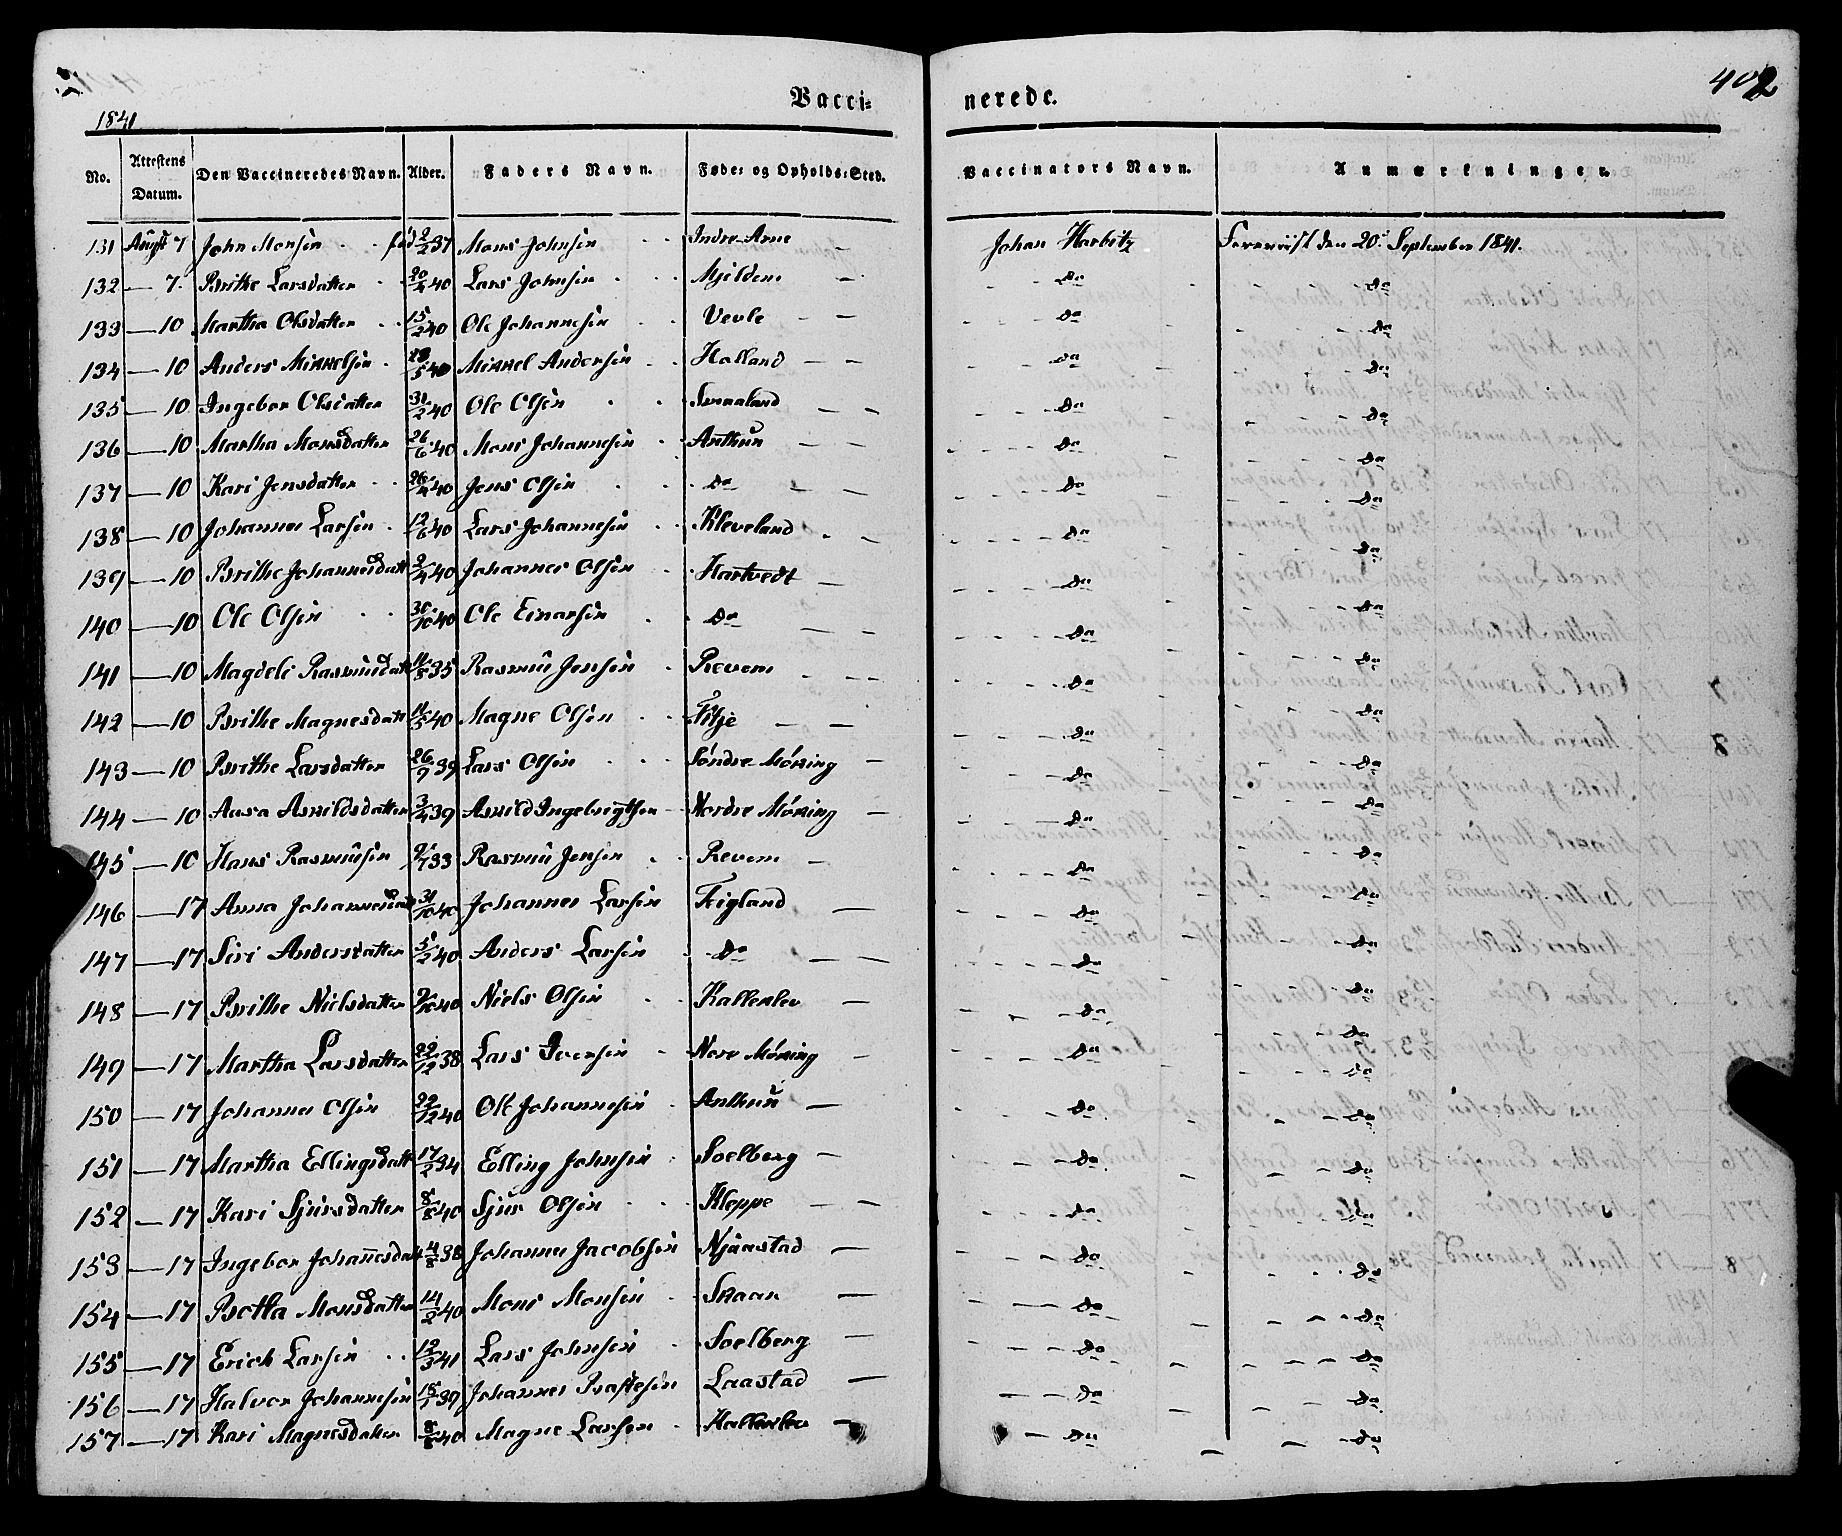 402
Vacci= nerede.
1841
No. Attestens Datum. Den Vaccineredes Navn. Alder. Faders Navn. Føde= og Opholds=Sted. Vaccinators Navn. Anmærkninger.
131 August 7 John Monsen fød 2/2 37 Mons Johnsen Indre Arne — Johan Horbitz Foreviist den 20d September 1841.
132 — 7 Brithe Larsdatter 20/2 40 Lars Johnsen Mjeldem — Do Do
133 — 10 Martha Olsdatter 15/2 40 Ole Johannesen Vevle — Do Do
134 — 10 Anders Mikkelsen /5 40 Mikkel Andersen Holland — Do Do
135 — 10 Ingebor Olsdatter 31/2 40 Ole Olsen — Do Do
136 — 10 Martha Monsdatter 26/6 40 Mons Johannesen Anthun — Do Do
137 — 10 Kari Jensdatter 26/4 40 Jens Olsen Do — Do Do
138 — 10 Johannes Larsen 12/6 40 Lars Johannesen Kleveland — Do Do
139 — 10 Brithe Johannesdatt 2/4 40 Johannes Olsen Hartvedt — Do Do
140 — 10 Ole Olsen 30/10 40 Ole Einarsen Do — Do Do
141 — 10 Magdeli Rasmusdatt 11/8 35 Rasmus Jensen Revem — Do Do
142 — 10 Brithe Magnesdatt 11/5 40 Magne Olsen Titje — Do Do
143 — 10 Brithe Larsdatter 26/9 39 Lars Olsen Søndre Mørning — Do Do
144 — 10 Aasa Askildsdatter 3/4 39 Askild Ingebrigthsen Nordre Mørning — Do Do
145 — 10 Hans Rasmusen /7 33 Rasmus Jensen Revem — Do Do
146 — 17 Anna Johannesdatt 31/10 40 Johannes Larsen Trigland — Do Do
147 — 17 Siri Andersdatter 5/2 40 Anders Larsen Do — Do Do
148 — 17 Brithe Nielsdatter 9/10 40 Niels Olsen Kallerlev — Do Do
149 — 17 Martha Larsdatter 22/12 38 Lars Iversen Nore Mørning — Do Do
150 — 17 Johannes Olsen 22/12 40 Ole Johannesen Anthun — Do Do
151 — 17 Martha Ellingsdatt 17/2 34 Elling Johnsen Soelberg — Do Do
152 — 17 Kari Sjursdatter 8/8 40 Sjur Olsen Kleppe — Do Do
153 — 17 Ingebor Johannesdatt 4/8 38 Johannes Jacobsen Njaastad — Do Do
154 — 17 Botha Monsdatter 14/2 40 Mons Monsen Skaar — Do Do
155 — 17 Erich Larsen 12/3 41 Lars Johnsen Soelberg — Do Do
156 — 17 Halvor Johannesen 15/1 39 Johannes Laastad — Do Do
157 — 17 Kari Magnesdatter 8/8 40 Magne Larsen Kallerlev — Do Do